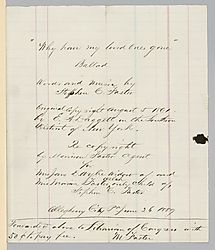 "Why have my loved ones gone"
Ballad
Words and Music by
Stephen C. Foster
Original Copyright August 5 1861
by C. A. Daggett in the Southern
District of New York.
Re copyright
by Morrison Foster Agent
for
Mrs Jane D. Wylie Widow of and
Miss Marion Foster only child of
Stephen C. Foster
Allegheny City Pa June 26 1889
Forwarded alone to Librarian of Congress with
50 cts to pay fee. M. Foster